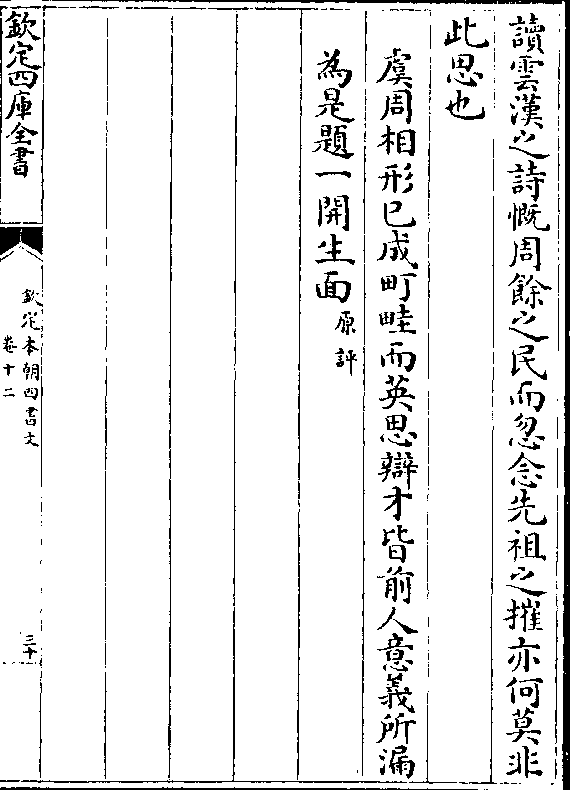 讀雲漢之詩慨周餘之民而忽念先祖之摧亦何莫非
此思也
虞周相形已成町畦而英思辯才皆前人意義所漏
為是題一開生面原評
欽定四庫全書
欽定本朝四書文
卷十二
三十